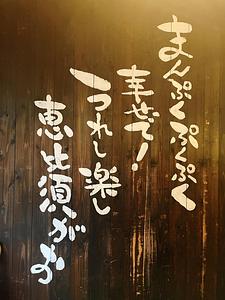 まんぷくぷくぷく
幸せで!
うれし楽し
恵比須がお